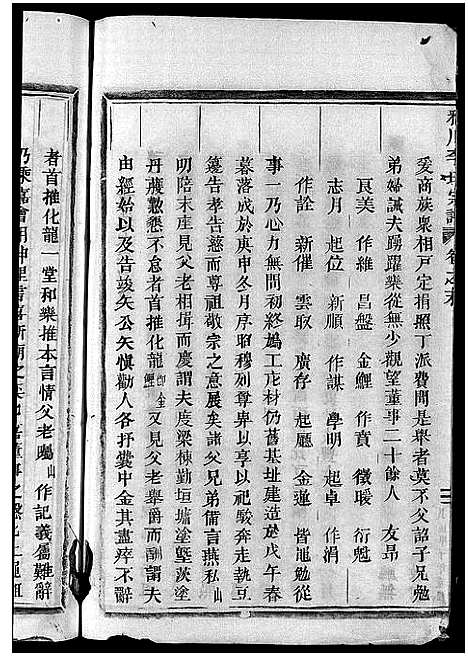 李氏宗譜 卷之末
爰商族衆相戶定捐照丁派費聞是舉者莫不父詔子兄勉
弟婦誡夫踴躍樂從無少觀望董事二十餘人 友昂
良美 作維 昌盤 金鯉 作賁 徵暖 衍魁
志月 起位 新作 作謀 學明 起卓 作涓
作詮 新催 雲取 廣存 起廳 金蓮 皆黽勉從
事一乃心力無間終始鳩工庀材仍舊基址建造於戊午春
暮落成於庚申冬月序昭穆别尊卑以享以祀駿奔走執豆
籩告孝告慈敬宗之意展矣諸父兄弟備言燕私山
明陪末座見父老相聚而慶謂夫度梁棟勤垣墉塗墍茨塗
丹雘懃懇不怠者首推化龍 又見父老舉爵而酬謂夫
由經始以及告竣矢公矢愼勸人各抒囊中金其盡瘁不辭
者首推化龍一堂和樂推本言情父老囑山作記義屬難辭